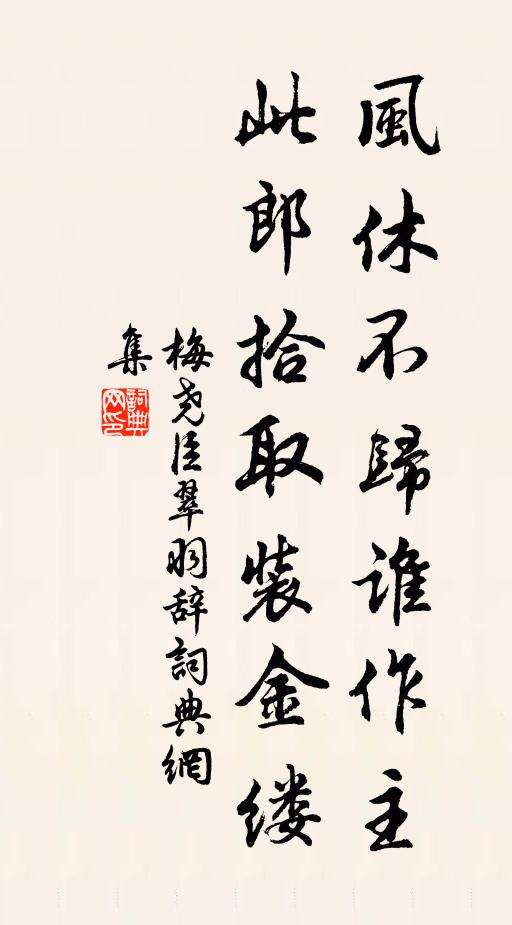 風休不歸誰作主
此郎拾取裝金缕
梅尧臣翠羽辞詞典網
集
詞典网印